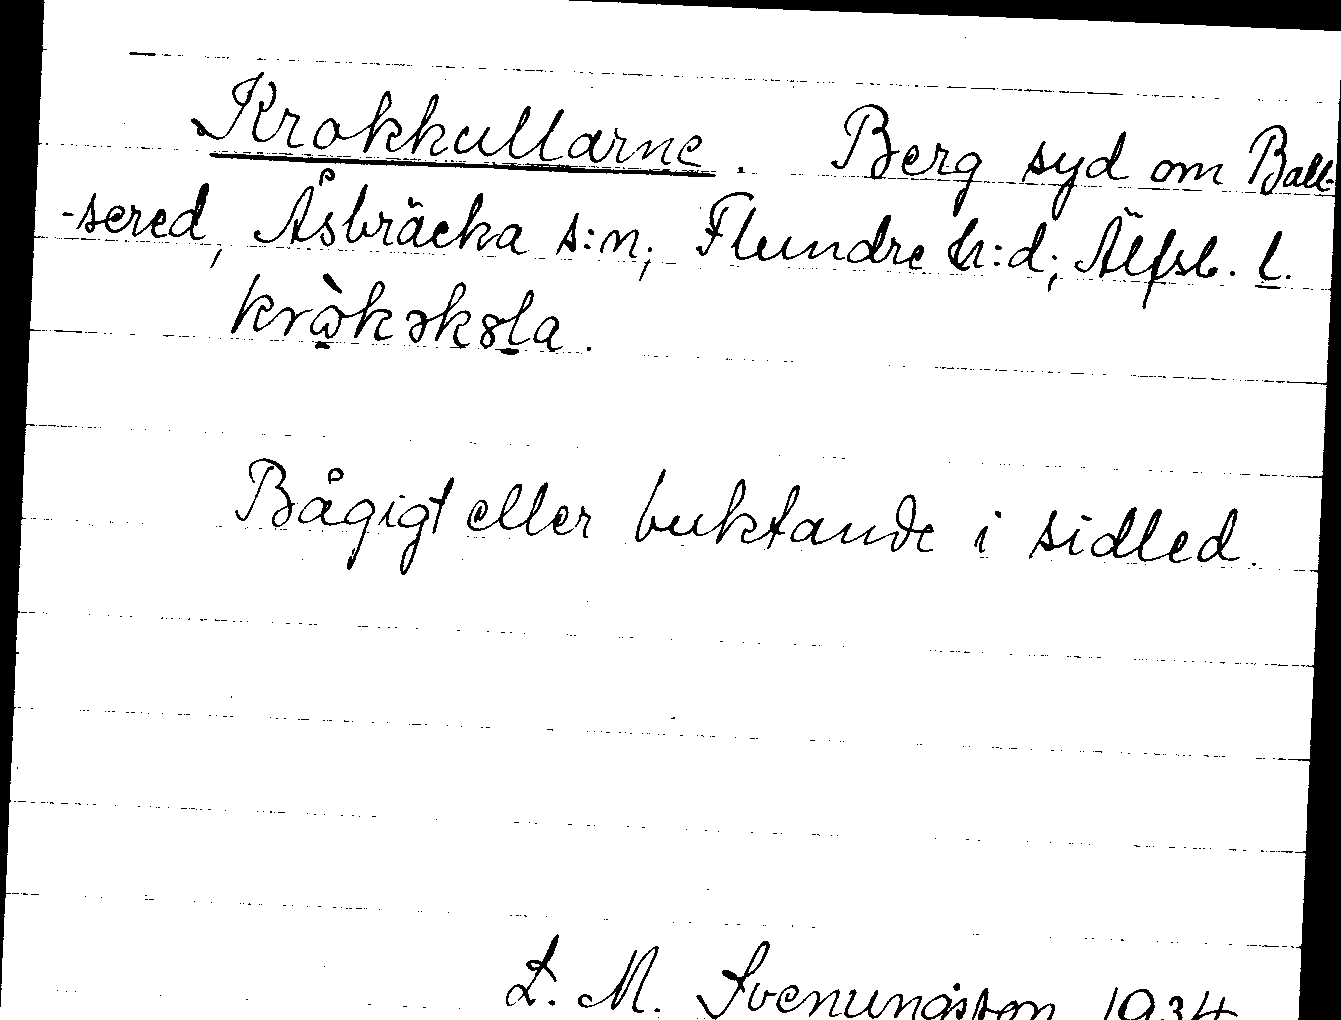 Krokkullarne. Berg syd om Ball-
-sered, Åsbräcka s:n; Flundre h:d; Älfsb. l.
Bågigt eller buktande i sidled.
L. M. Svenungsson 1934